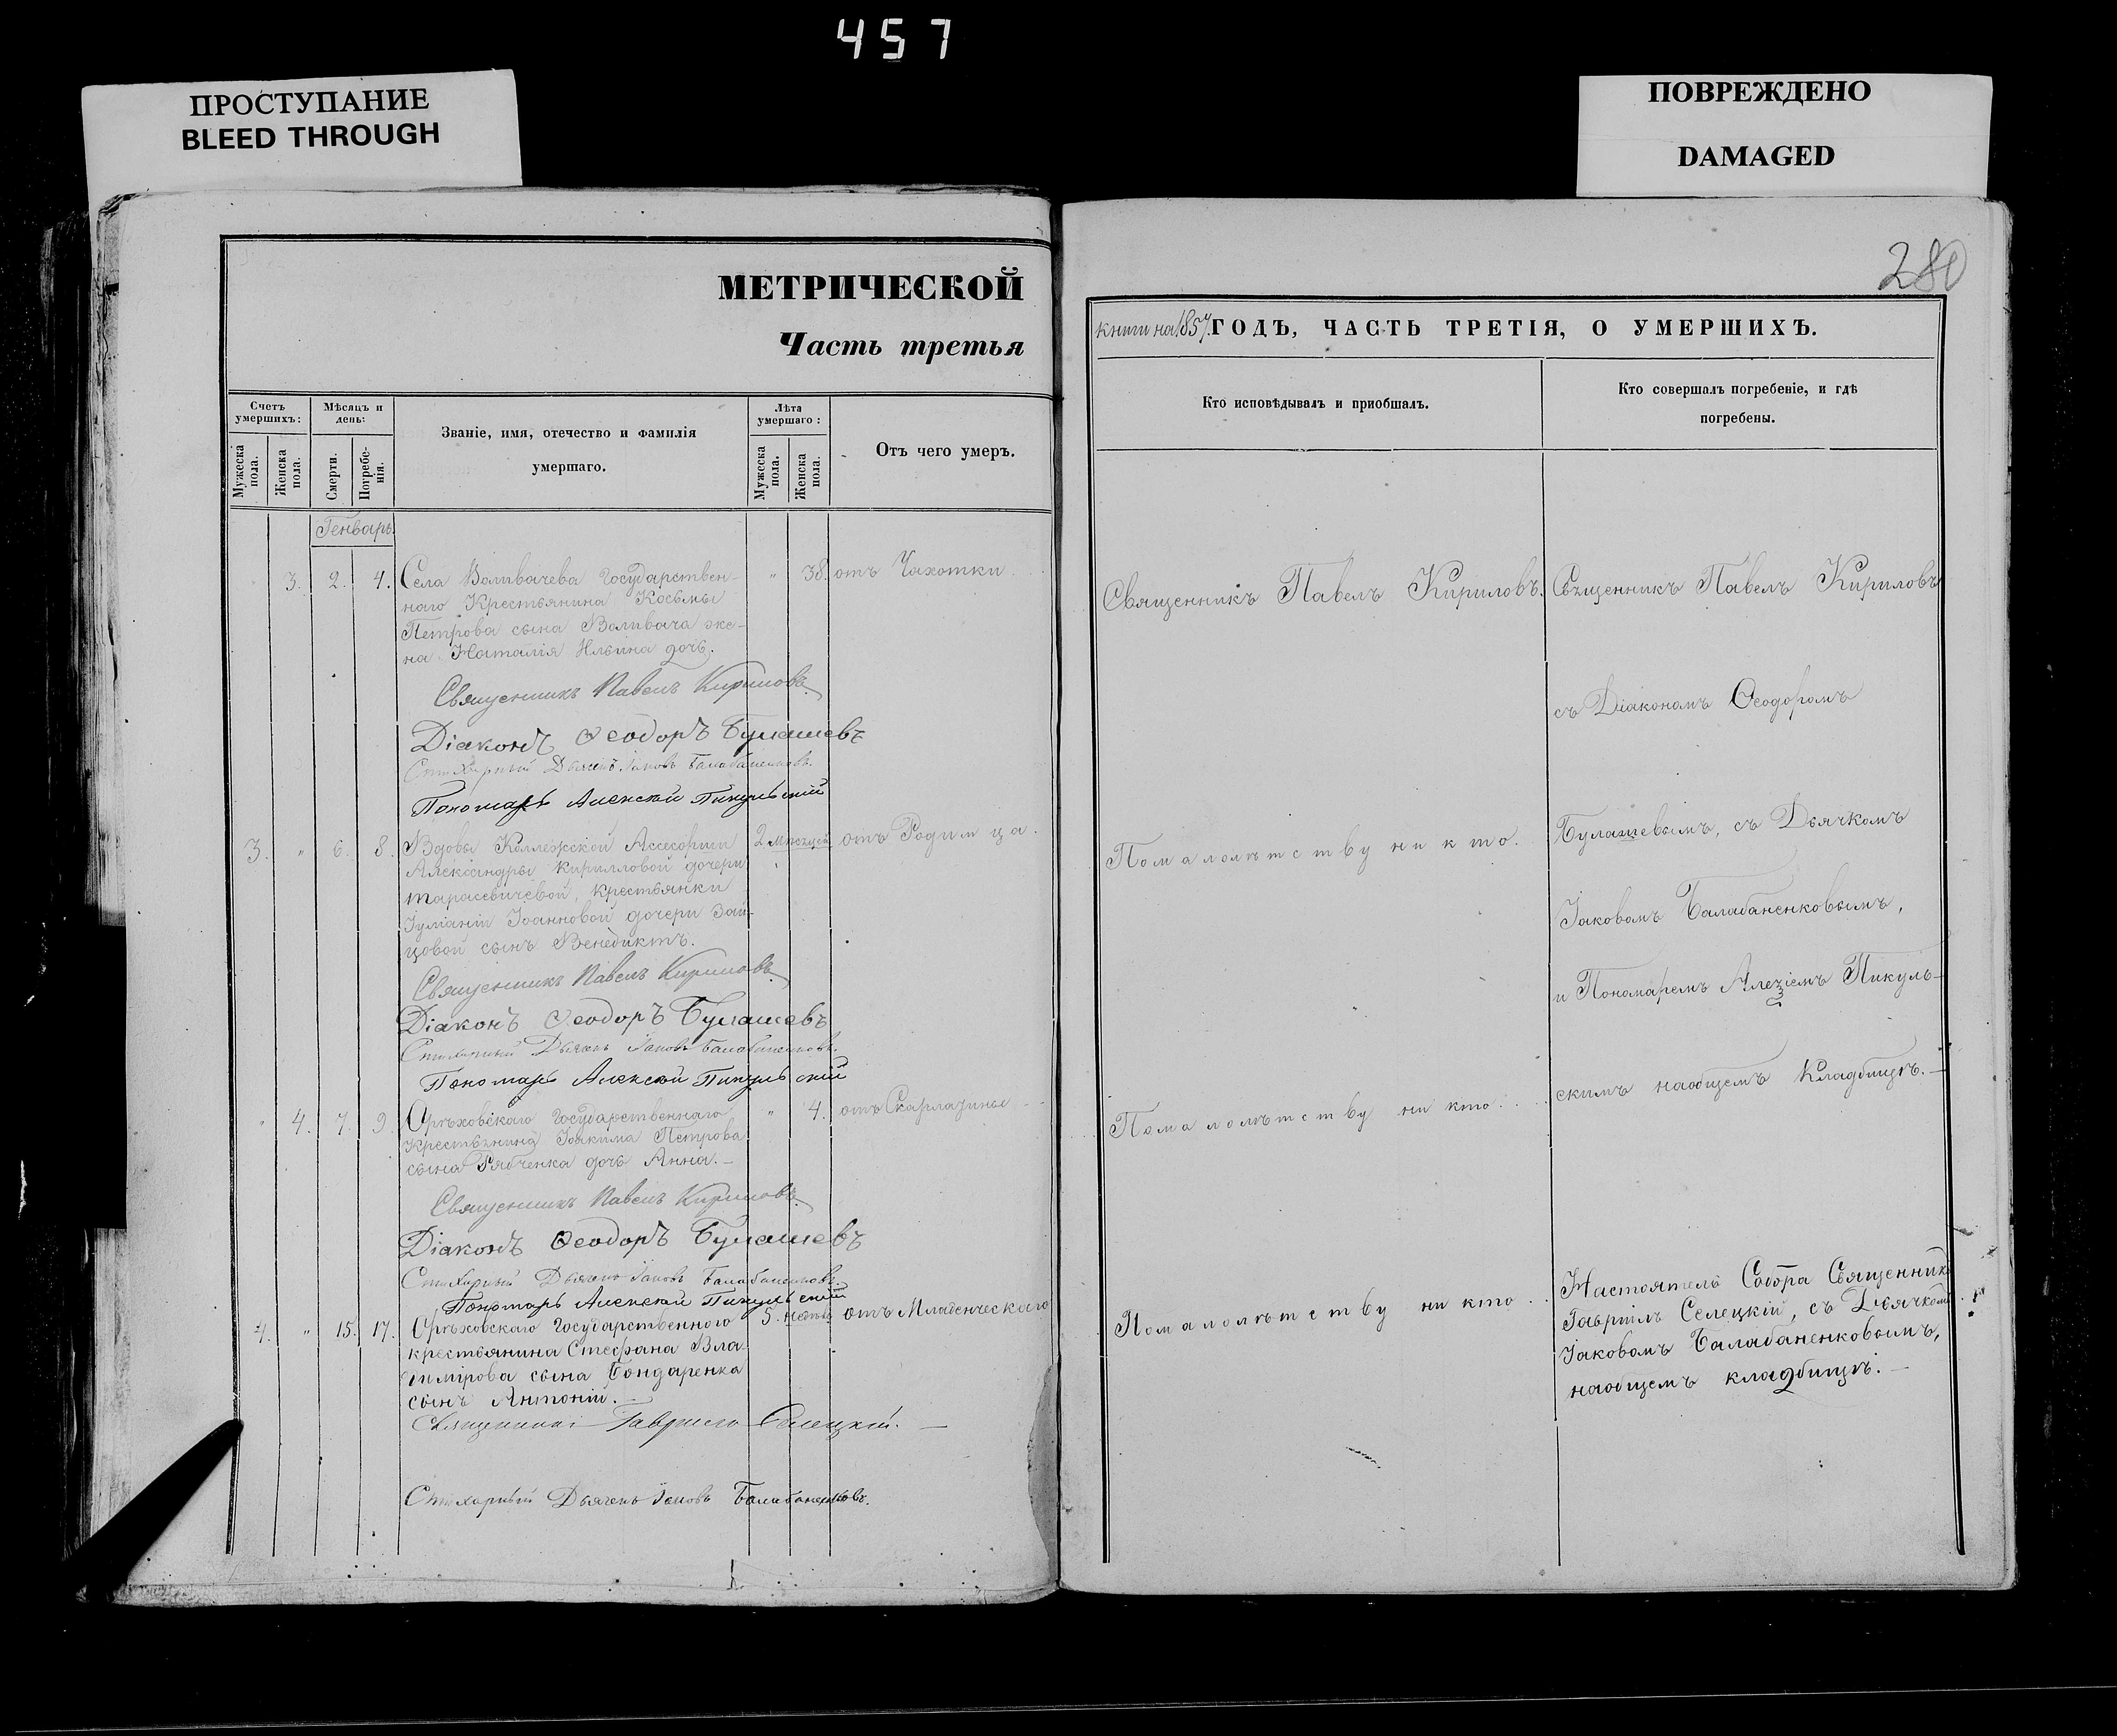 457
ПРОСТУПАНИЕ
BLEED THROUGH
ПОВРЕЖДЕНО
DAMAGED
280
МЕТРИЧЕСКОЙ
Часть третья
Счетъ умершихъ:
Мужеска пола.
Женска пола.
Мѣсяцъ и день:
Смерти.
Погребенія.
Званіе, имя, отечество и фамилія
умершаго.
Лѣта умершаго:
Мужеска пола.
Женска пола.
Отъ чего умеръ.
Генварь.
" 3. 2. 4. Села Воливачева Государствен-
" 38. отъ Чахотки
наго Крестьянина Косьмы
Петрова сына Воливача же-
на Наталія Ильина дочь.
Священникъ Павелъ Кириловъ
Діаконъ Ѳеодоръ Булашевъ
Стихарный Дьячекъ Іаковъ Балабаненковъ.
Пономарь Алексѣй Пикульскій
3. " 6. 8. Вдовы Коллежской Ассесорши
2 мѣсяцей отъ Родимца.
Александры Кирилловой дочери
Тарасевичевой, крестьянки
Іуліаніи Іоанновой дочери Зай-
цовой сынъ Венедиктъ.
Священникъ Павелъ Кириловъ
Діаконъ Ѳеодоръ Булашевъ
Стихарный Дьячекъ Іаковъ Балабаненковъ.
Пономарь Алексѣй Пикульскій
" 4. 7. 9. Орѣховскаго Государственнаго
" 4. отъ Скарлатины
Крестьянина Іоакима Петрова
сына Рябченка дочь Анна.—
Священникъ Павелъ Кириловъ
Діаконъ Ѳеодоръ Булашевъ
Стихарный Дьячекъ Іаковъ Балабаненковъ.
Пономарь Алексѣй Пикульскій
4. " 15. 17. Орѣховскаго Государственнаго
5. отъ Младенческаго
крестьянина Стефана Вла-
димірова сына Бондаренка
сынъ Антоній.—
Священникъ Гавріилъ Селецкій.—
Стихарный Дьячекъ Іаковъ Балабаненковъ.
книги на 1857. ГОДЪ, ЧАСТЬ ТРЕТІЯ, О УМЕРШИХЪ.
Кто исповѣдывалъ и приобщалъ.
Кто совершалъ погребеніе, и гдѣ
погребены.
Священникъ Павелъ Кириловъ.
Помалолѣтству никто.
Помалолѣтству никто.
Помалолѣтству никто.
Священникъ Павелъ Кириловъ
съ Діакономъ Ѳеодоромъ
Булашевымъ, съ Дьячкомъ
Іаковомъ Балабаненковымъ,
и Пономаремъ Алезіемъ Пикуль-
скимъ наобщемъ Кладбищѣ.—
Настоятель Собора Священник
Гавріилъ Селецкій, съ Дьячком
Іаковомъ Балабаненковымъ,
наобщемъ кладбищѣ.—